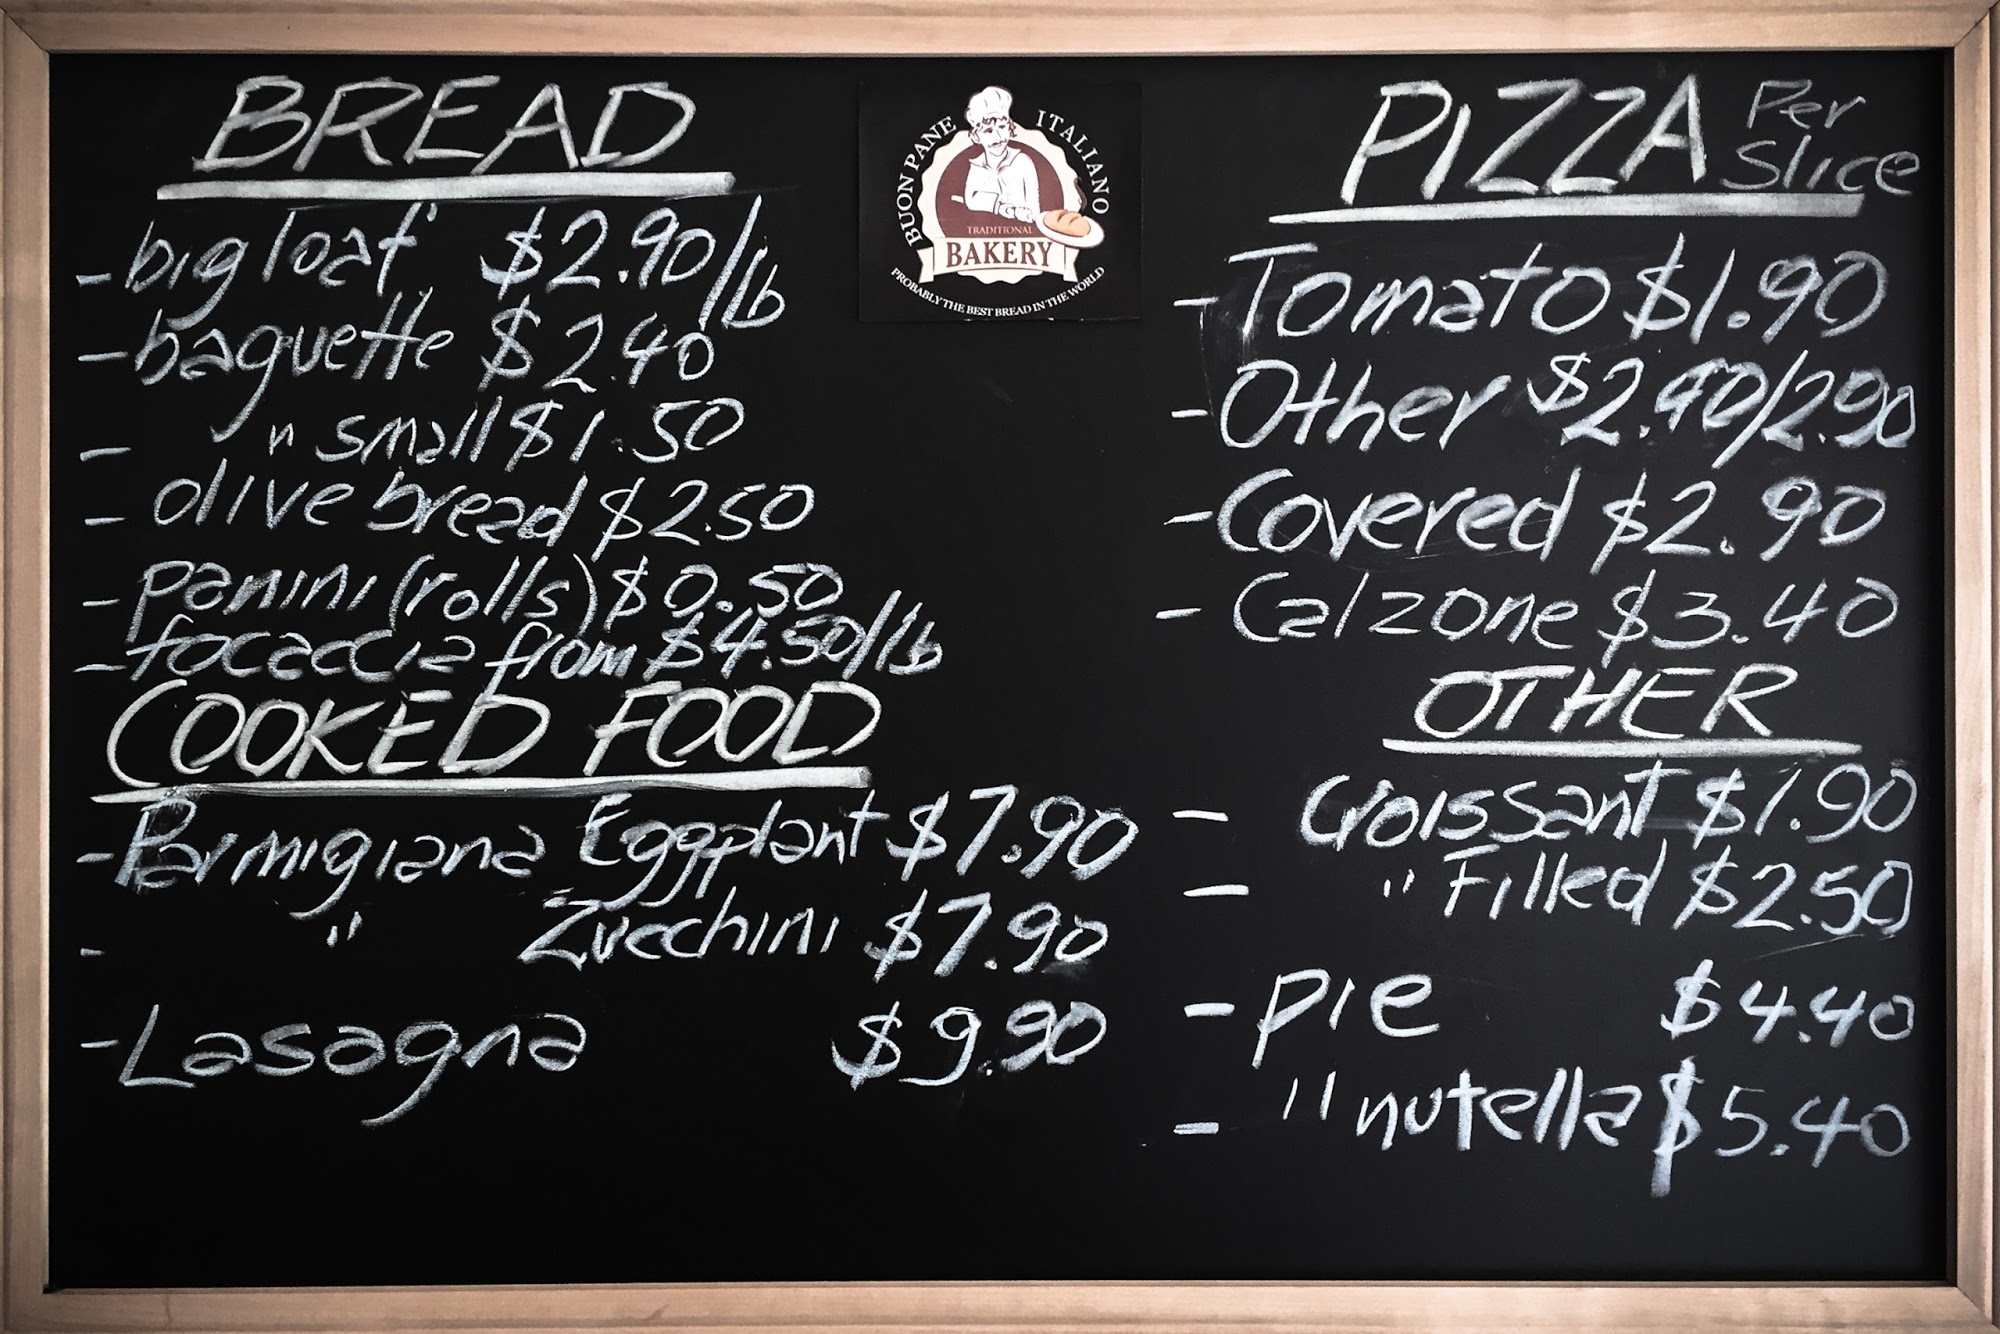 BREAD
- big loaf $2.90/lb
- baguette $2.40
- " small $1.50
- olive bread $2.50
- panini (rolls) $0.50
- focaccia from $4.50/lb
COOKED FOOD
- Parmigiana Eggplant $7.90
- " Zucchini $7.90
- Lasagna $9.90
BUON PANE ITALIANO
TRADITIONAL
BAKERY
PROBABLY THE BEST BREAD IN THE WORLD
PIZZA Per Slice
- Tomato $1.90
- Other $2.40/2.90
- Covered $2.90
- Calzone $3.40
OTHER
- Croissant $1.90
- " Filled $2.50
- pie $4.40
- " nutella $5.40